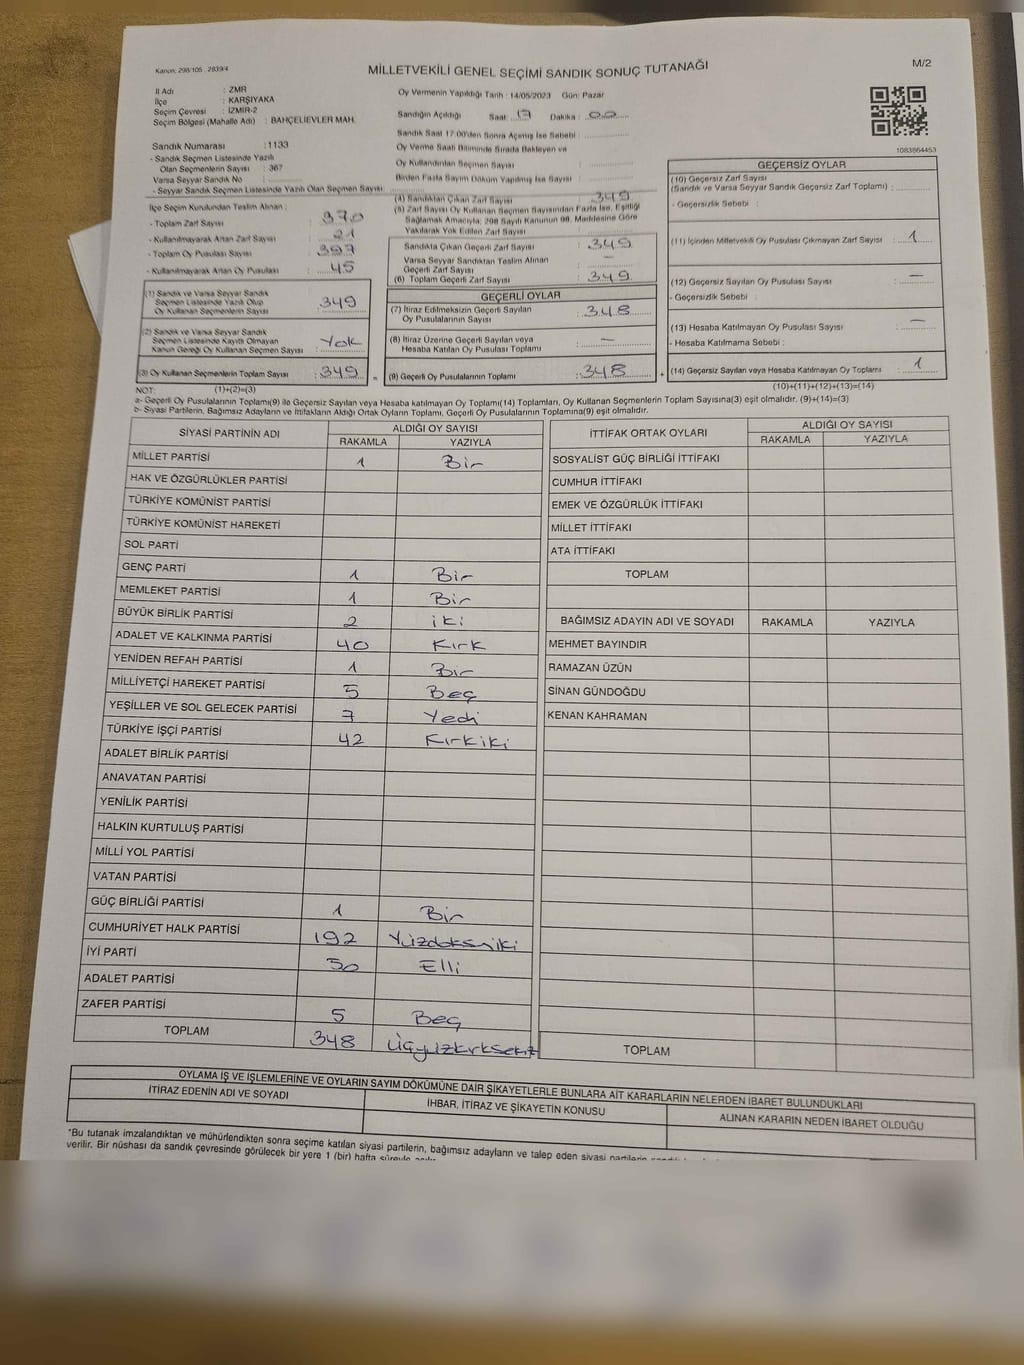 Kanon: 298/105 , 2839/4
MİLLETVEKİLİ GENEL SEÇİMİ SANDIK SONUÇ TUTANAĞI
M/2
İl Adı : ZMR
İlçe : KARŞIYAKA
Seçim Çevresi : İZMİR-2
Seçim Bölgesi (Mahalle Adı) : BAHÇELİEVLER MAH.
Sandık Numarası :1133
- Sandık Seçmen Listesinde Yazılı
Olan Seçmenlerin Sayısı : 367
Varsa Seyyar Sandık No :
- Seyyar Sandık Seçmen Listesinde Yazılı Olan Seçmen Sayısı:
Oy Vermenin Yapıldığı Tarih : 14/05/2023 Gün: Pazar
Sandığın Açıldığı Saat : 17 Dakika : 00
Sandık Saat 17:00'den Sonra Açılmış İse Sebebi :
Oy Verme Saati Bitiminde Sırada Bekleyen ve
Oy Kullandırılan Seçmen Sayısı :
Birden Fazla Sayım Döküm Yapılmış İse Sayısı :
1083864453
İlçe Seçim Kurulundan Teslim Alınan :
- Toplam Zarf Sayısı : 370
- Kullanılmayarak Artan Zarf Sayısı : 21
- Toplam Oy Pusulası : 397
- Kullanılmayarak Artan Oy Pusulası : 45
(1) Sandık ve Varsa Seyyar Sandık
Seçmen Listesinde Yazılı Olup
Oy Kullanan Seçmenlerin Sayısı : 349
(2) Sandık ve Varsa Seyyar Sandık
Seçmen Listesinde Kayıtlı Olmayan
Kanun Gereği Oy Kullanan Seçmen Sayısı : Yok
(3) Oy Kullanan Seçmenlerin Toplam Sayısı : 349 =
(4) Sandıktan Çıkan Zarf Sayısı : 349
(5) Zarf Sayısı Oy Kullanan Seçmen Sayısından Fazla İse, Eşitliği
Sağlamak Amacıyla, 298 Sayılı Kanunun 98. Maddesine Göre
Yakılarak Yok Edilen Zarf Sayısı :
Sandıkta Çıkan Geçerli Zarf Sayısı : 349
Varsa Seyyar Sandıktan Teslim Alınan
Geçerli Zarf Sayısı : -
(6) Toplam Geçerli Zarf Sayısı : 349
GEÇERLİ OYLAR
(7) İtiraz Edilmeksizin Geçerli Sayılan
Oy Pusulalarının Sayısı : 348
(8) İtiraz Üzerine Geçerli Sayılan veya
Hesaba Katılan Oy Pusulası Toplamı : -
(9) Geçerli Oy Pusulalarının Toplamı : 348 +
GEÇERSİZ OYLAR
(10) Geçersiz Zarf Sayısı
(Sandık ve Varsa Seyyar Sandık Geçersiz Zarf Toplamı) :
- Geçersizlik Sebebi :
(11) İçinden Milletvekili Oy Pusulası Çıkmayan Zarf Sayısı : 1
(12) Geçersiz Sayılan Oy Pusulası Sayısı : -
- Geçersizlik Sebebi :
(13) Hesaba Katılmayan Oy Pusulası Sayısı : -
- Hesaba Katılmama Sebebi :
(14) Geçersiz Sayılan veya Hesaba Katılmayan Oy Toplamı : 1
NOT: (1)+(2)=(3)
(10)+(11)+(12)+(13)=(14)
a- Geçerli Oy Pusulalarının Toplamı(9) ile Geçersiz Sayılan veya Hesaba katılmayan Oy Toplamı(14) Toplamları, Oy Kullanan Seçmenlerin Toplam Sayısına(3) eşit olmalıdır. (9)+(14)=(3)
b- Siyasi Partilerin, Bağımsız Adayların ve İttifakların Aldığı Ortak Oyların Toplamı, Geçerli Oy Pusulalarının Toplamına(9) eşit olmalıdır.
SİYASİ PARTİNİN ADI ALDIĞI OY SAYISI
RAKAMLA YAZIYLA
MİLLET PARTİSİ 1 Bir
HAK VE ÖZGÜRLÜKLER PARTİSİ
TÜRKİYE KOMÜNİST PARTİSİ
TÜRKİYE KOMÜNİST HAREKETİ
SOL PARTİ
GENÇ PARTİ 1 Bir
MEMLEKET PARTİSİ 1 Bir
BÜYÜK BİRLİK PARTİSİ 2 iki
ADALET VE KALKINMA PARTİSİ 40 Kırk
YENİDEN REFAH PARTİSİ 1 Bir
MİLLİYETÇİ HAREKET PARTİSİ 5 Beş
YEŞİLLER VE SOL GELECEK PARTİSİ 7 Yedi
TÜRKİYE İŞÇİ PARTİSİ 42 Kırkiki
ADALET BİRLİK PARTİSİ
ANAVATAN PARTİSİ
YENİLİK PARTİSİ
HALKIN KURTULUŞ PARTİSİ
MİLLİ YOL PARTİSİ
VATAN PARTİSİ
GÜÇ BİRLİĞİ PARTİSİ 1 Bir
CUMHURİYET HALK PARTİSİ 192 Yüzdoksaniki
İYİ PARTİ 50 Elli
ADALET PARTİSİ
ZAFER PARTİSİ 5 Beş
TOPLAM 348 Üçyüzkırksekiz
İTTİFAK ORTAK OYLARI ALDIĞI OY SAYISI
RAKAMLA YAZIYLA
SOSYALİST GÜÇ BİRLİĞİ İTTİFAKI
CUMHUR İTTİFAKI
EMEK VE ÖZGÜRLÜK İTTİFAKI
MİLLET İTTİFAKI
ATA İTTİFAKI
TOPLAM
BAĞIMSIZ ADAYIN ADI VE SOYADI RAKAMLA YAZIYLA
MEHMET BAYINDIR
RAMAZAN ÜZÜN
SİNAN GÜNDOĞDU
KENAN KAHRAMAN
TOPLAM
OYLAMA İŞ VE İŞLEMLERİNE VE OYLARIN SAYIM DÖKÜMÜNE DAİR ŞİKAYETLERLE BUNLARA AİT KARARLARIN NELERDEN İBARET BULUNDUKLARI
İTİRAZ EDENİN ADI VE SOYADI İHBAR, İTİRAZ VE ŞİKAYETİN KONUSU ALINAN KARARIN NEDEN İBARET OLDUĞU
*Bu tutanak imzalandıktan ve mühürlendikten sonra seçime katılan siyasi partilerin, bağımsız adayların ve talep eden siyasi partilerin
verilir. Bir nüshası da sandık çevresinde görülecek bir yere 1 (bir) hafta süreyle